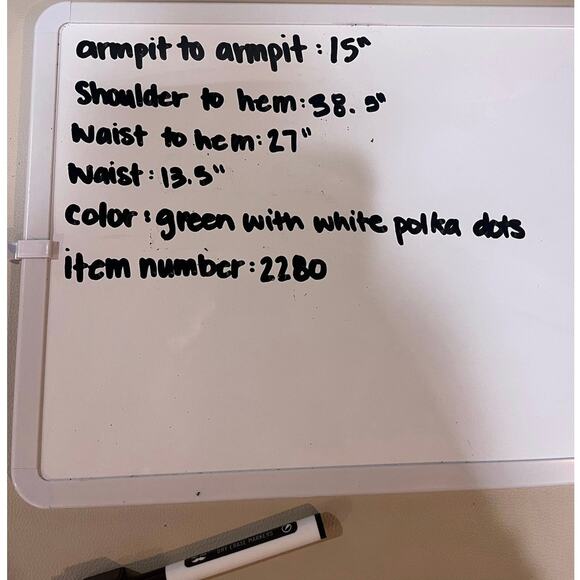 armpit to armpit: 15"
Shoulder to hem: 38.5"
Waist to hem: 27"
Waist: 13.5"
color: green with white polka dots
item number: 2280
DRY ERASE MARKERS